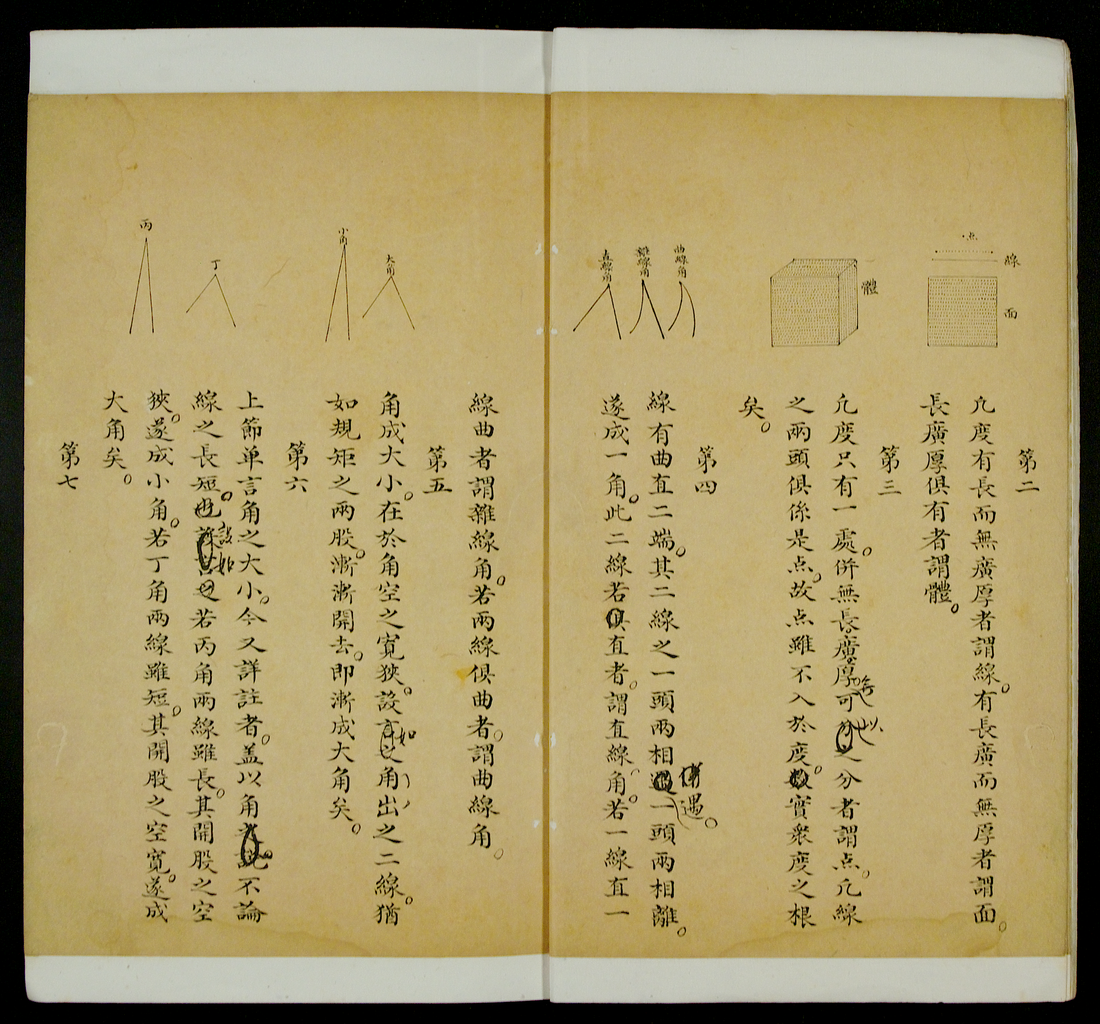 点
線
面
體
曲線角
雜線角
直線角
第二
凢度有長而無廣厚者謂線。有長廣而無厚者謂面。
長廣厚俱有者謂體。
第三
凢度只有一處。併無長廣厚可以之分者謂点。凢線
之兩頭俱係是点。故点雖不入於度。實衆度之根
矣。
第四
線有曲直二端。其二線之一頭兩相遇。一頭兩相離。
遂成一角。此二線若俱直者。謂直線角。若一線直一
大角
小角
丁
丙
線曲者謂雜線角。若兩線俱曲者。謂曲線角。
第五
角成大小。在於角空之寬狹。設如角出之二線。猶
如規矩之兩股。漸漸開去。即漸成大角矣。
第六
上節单言角之大小。今又詳註者。盖以角不論
線之長短。設如若丙角兩線雖長。其開股之空
狹。遂成小角。若丁角兩線雖短。其開股之空寬。遂成
大角矣。
第七